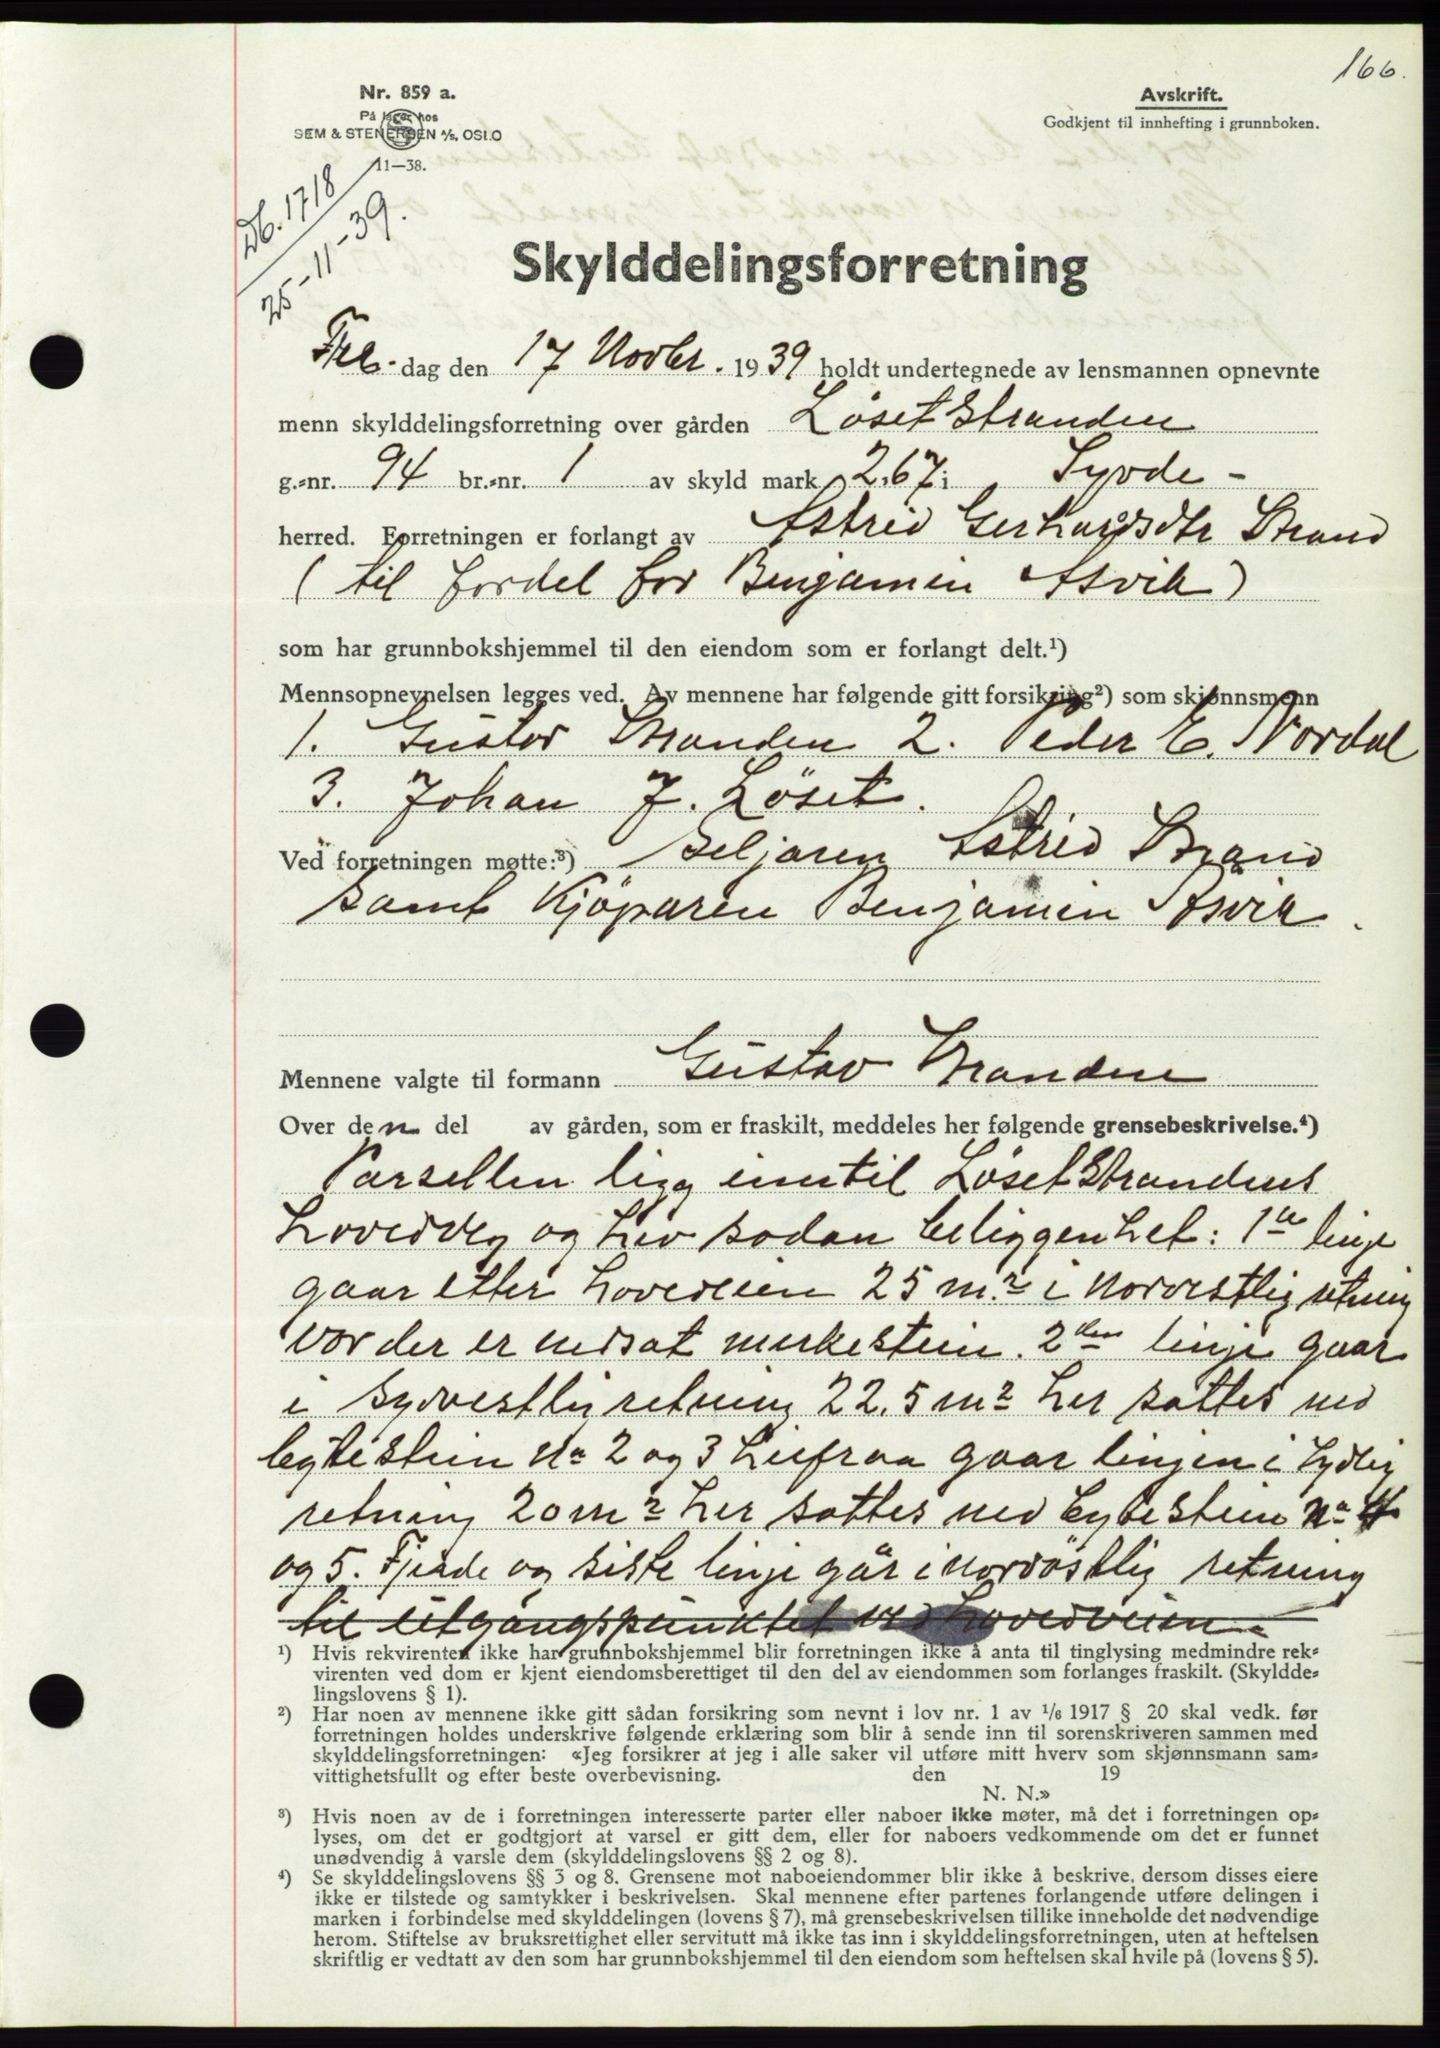 166.
Nr. 859 a.
På lager hos
SEM & STENERSEN A/S, OSLO
11—38.
Avskrift.
Godkjent til innhefting i grunnboken.
Db. 1718
25-11-39.
Skylddelingsforretning
Fre dag den 17 Novbr. 1939 holdt undertegnede av lensmannen opnevnte
menn skylddelingsforretning over gården Løset Stranden
g.-nr. 94 br.-nr. 1 av skyld mark 2,67 i Syvde-
herred. Forretningen er forlangt av Astrid Gerhardsdtr Strand
(til fordel for Benjamin Åsvik)
som har grunnbokshjemmel til den eiendom som er forlangt delt.¹)
Mennsopnevnelsen legges ved. Av mennene har følgende gitt forsikring²) som skjønnsmenn
1. Gustav Stranden 2. Peder E. Nordal
3. Johan J. Löset.
Ved forretningen møtte:³) Seljaren Astrid Strand
samt Kjöparen Benjamin Åsvik.
Mennene valgte til formann Gustav Stranden
Over den del av gården, som er fraskilt, meddeles her følgende grensebeskrivelse.⁴)
Parsellen ligg inntil Löset Strandens
hovedveg og hev sodan beliggenhet: 1ste linje
gaar etter hovedveien 25 m.² i Nordvestlig retning
vor der er nedsat merkestein. 2den linje gaar
i sydvestlig retning 22,5 m² her sattes ned
bytestein No 2 og 3 herfraa gaar linjen i Sydlig
retning 20 m² her sattes ned bytestein No 4
og 5. Fjerde og siste linje går i nordöstlig retning
til utgangspunktet ved hovedveien.
¹) Hvis rekvirenten ikke har grunnbokshjemmel blir forretningen ikke å anta til tinglysing medmindre rek-
virenten ved dom er kjent eiendomsberettiget til den del av eiendommen som forlanges fraskilt. (Skyldde-
lingslovens § 1).
²) Har noen av mennene ikke gitt sådan forsikring som nevnt i lov nr. 1 av 1/6 1917 § 20 skal vedk. før
forretningen holdes underskrive følgende erklæring som blir å sende inn til sorenskriveren sammen med
skylddelingsforretningen: «Jeg forsikrer at jeg i alle saker vil utføre mitt hverv som skjønnsmann sam-
vittighetsfullt og efter beste overbevisning. den 19
N. N.»
³) Hvis noen av de i forretningen interesserte parter eller naboer ikke møter, må det i forretningen op-
lyses, om det er godtgjort at varsel er gitt dem, eller for naboers vedkommende om det er funnet
unødvendig å varsle dem (skylddelingslovens §§ 2 og 8).
⁴) Se skylddelingslovens §§ 3 og 8. Grensene mot naboeiendommer blir ikke å beskrive, dersom disses eiere
ikke er tilstede og samtykker i beskrivelsen. Skal mennene efter partenes forlangende utføre delingen i
marken i forbindelse med skylddelingen (lovens § 7), må grensebeskrivelsen tillike inneholde det nødvendige
herom. Stiftelse av bruksrettighet eller servitutt må ikke tas inn i skylddelingsforretningen, uten at heftelsen
skriftlig er vedtatt av den som har grunnbokshjemmel til den eiendom som heftelsen skal hvile på (lovens § 5).